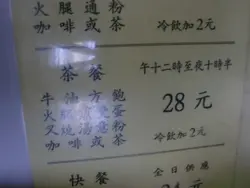 火腿通粉
咖啡或茶 冷飲加2元
茶餐 午十二時至夜十時半
牛油方飽
火腿 蛋
叉燒湯意粉
28元
咖啡或茶 冷飲加2元
快餐 全日供應